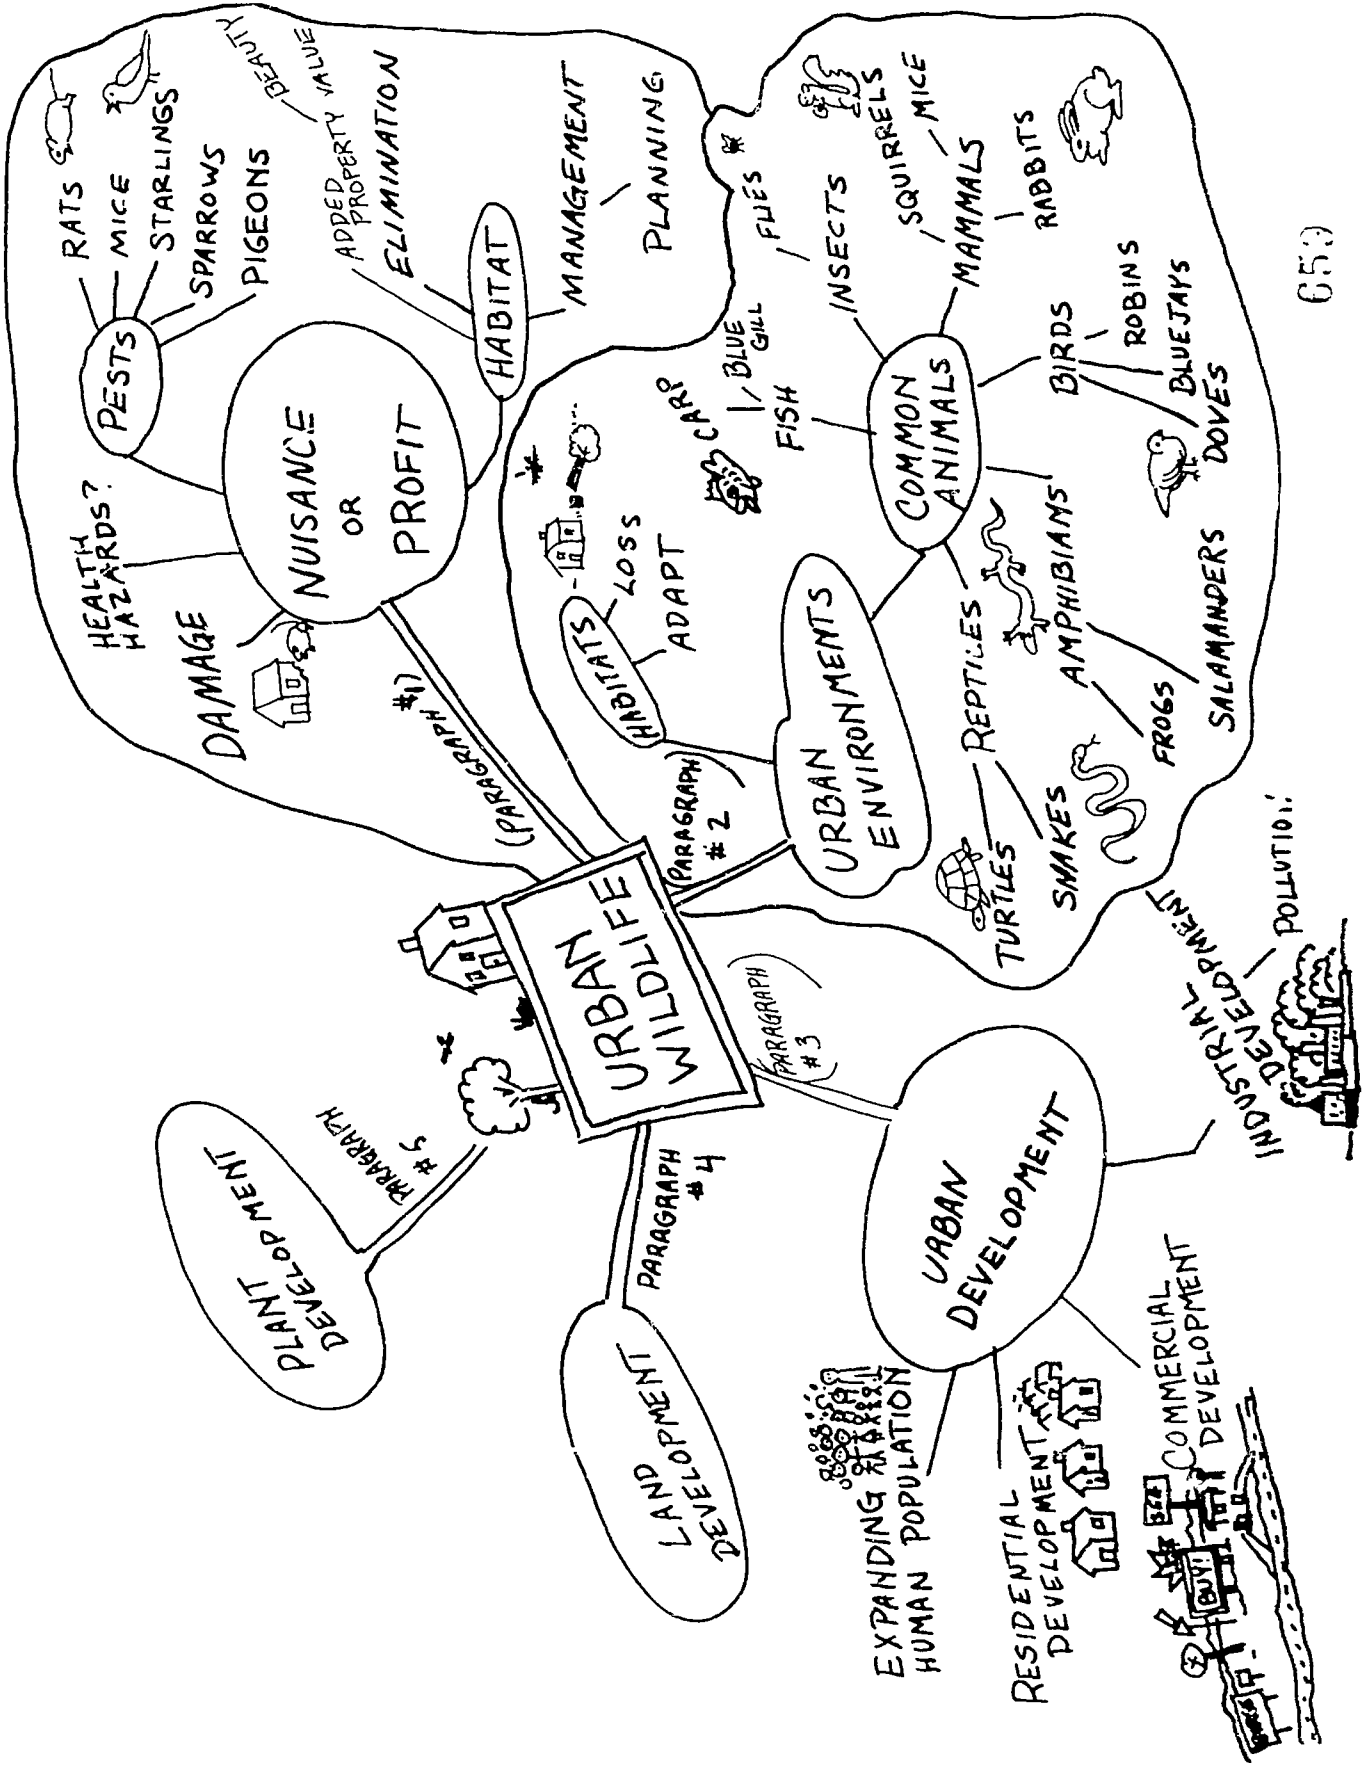 URBAN
WILDLIFE
(PARAGRAPH #1)
NUISANCE
OR
PROFIT
DAMAGE
HEALTH
HAZARDS?
PESTS
RATS
MICE
STARLINGS
SPARROWS
PIGEONS
HABITAT
ADDED
PROPERTY VALUE
BEAUTY
ELIMINATION
MANAGEMENT
PLANNING
(PARAGRAPH
#2)
URBAN
ENVIRONMENTS
HABITATS
LOSS
ADAPT
COMMON
ANIMALS
FISH
CARP
BLUE
GILL
INSECTS
FLIES
MAMMALS
SQUIRRELS
MICE
RABBITS
BIRDS
ROBINS
BLUEJAYS
DOVES
AMPHIBIANS
FROGS
SALAMANDERS
REPTILES
TURTLES
SNAKES
(PARAGRAPH
#3)
URBAN
DEVELOPMENT
INDUSTRIAL
DEVELOPMENT
POLLUTION!
COMMERCIAL
DEVELOPMENT
BUY!
RESIDENTIAL
DEVELOPMENT
EXPANDING
HUMAN POPULATION
PARAGRAPH
#4
LAND
DEVELOPMENT
PARAGRAPH
#5
PLANT
DEVELOPMENT